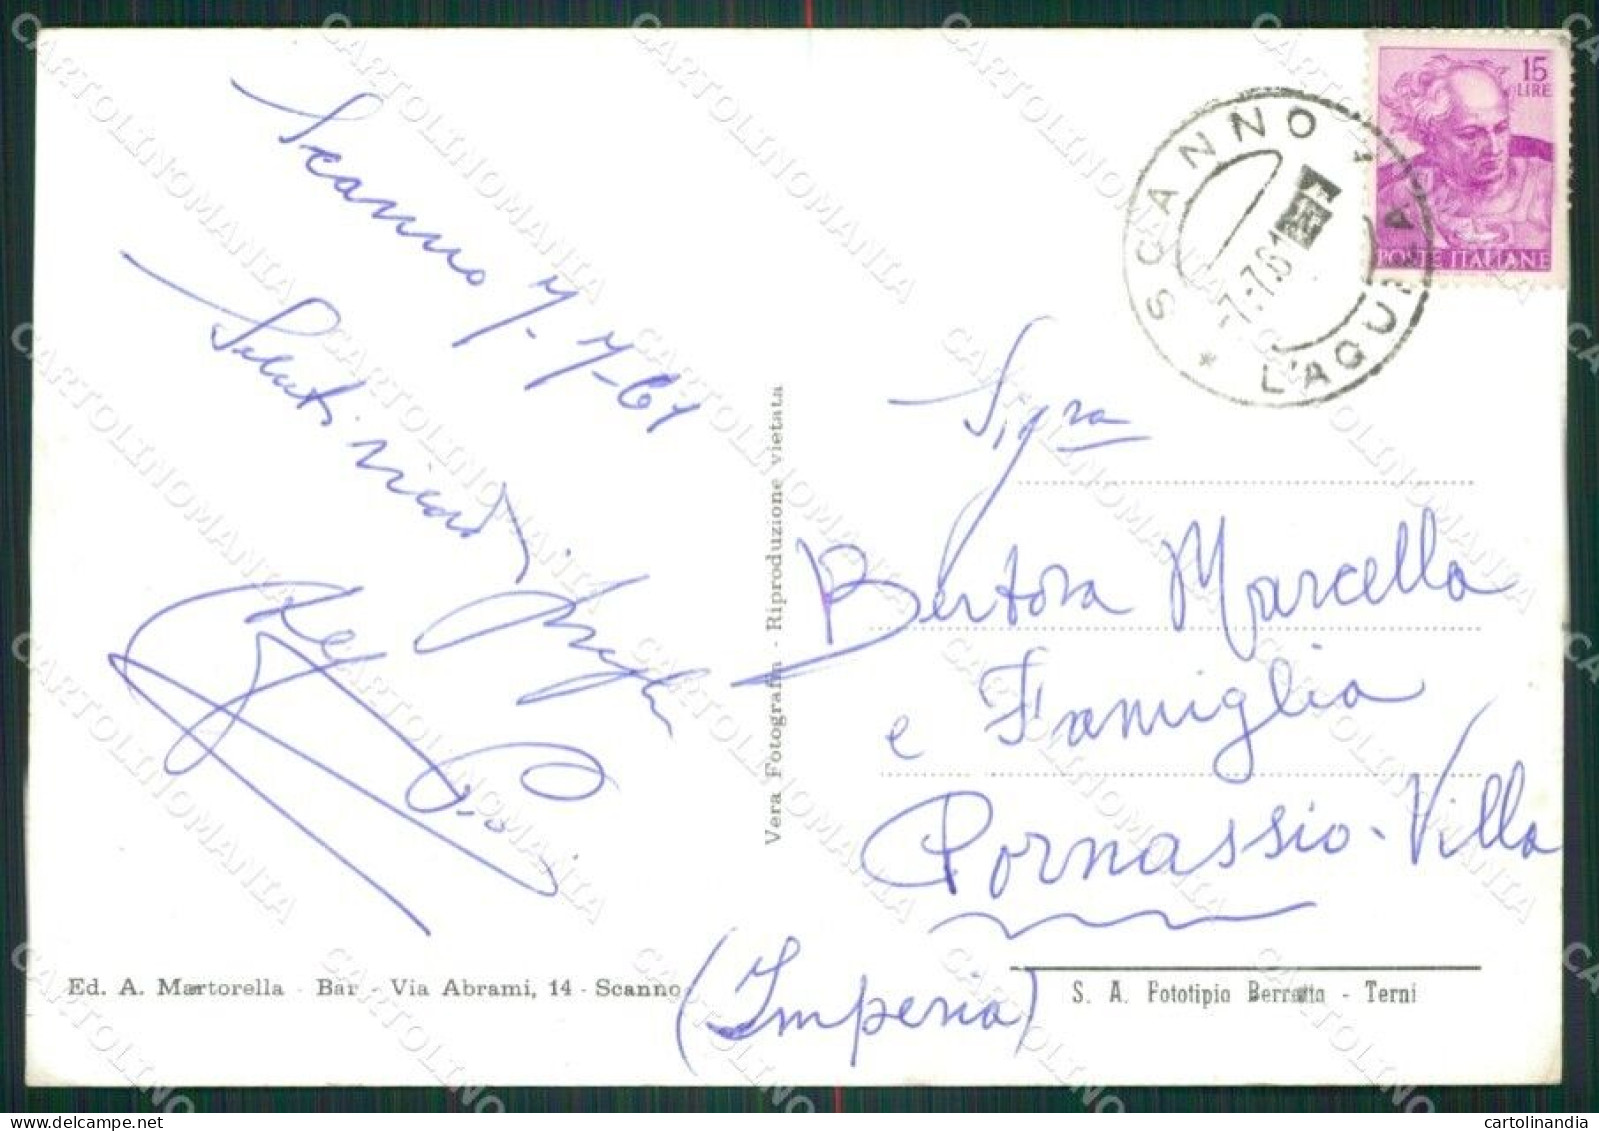 Scanno 7-7-61
Saluti
Sig.ra
Bertora Marcella
e Famiglia
Pornassio-Villa
(Imperia)
SCANNO
L'AQUILA
-7.-7.61
15
LIRE
POSTE ITALIANE
Vera Fotografia - Riproduzione vietata
Ed. A. Martorella - Bar - Via Abrami, 14 - Scanno
S. A. Fototipia Berretta - Terni
CARTOLINOMANIA
cartolinandia